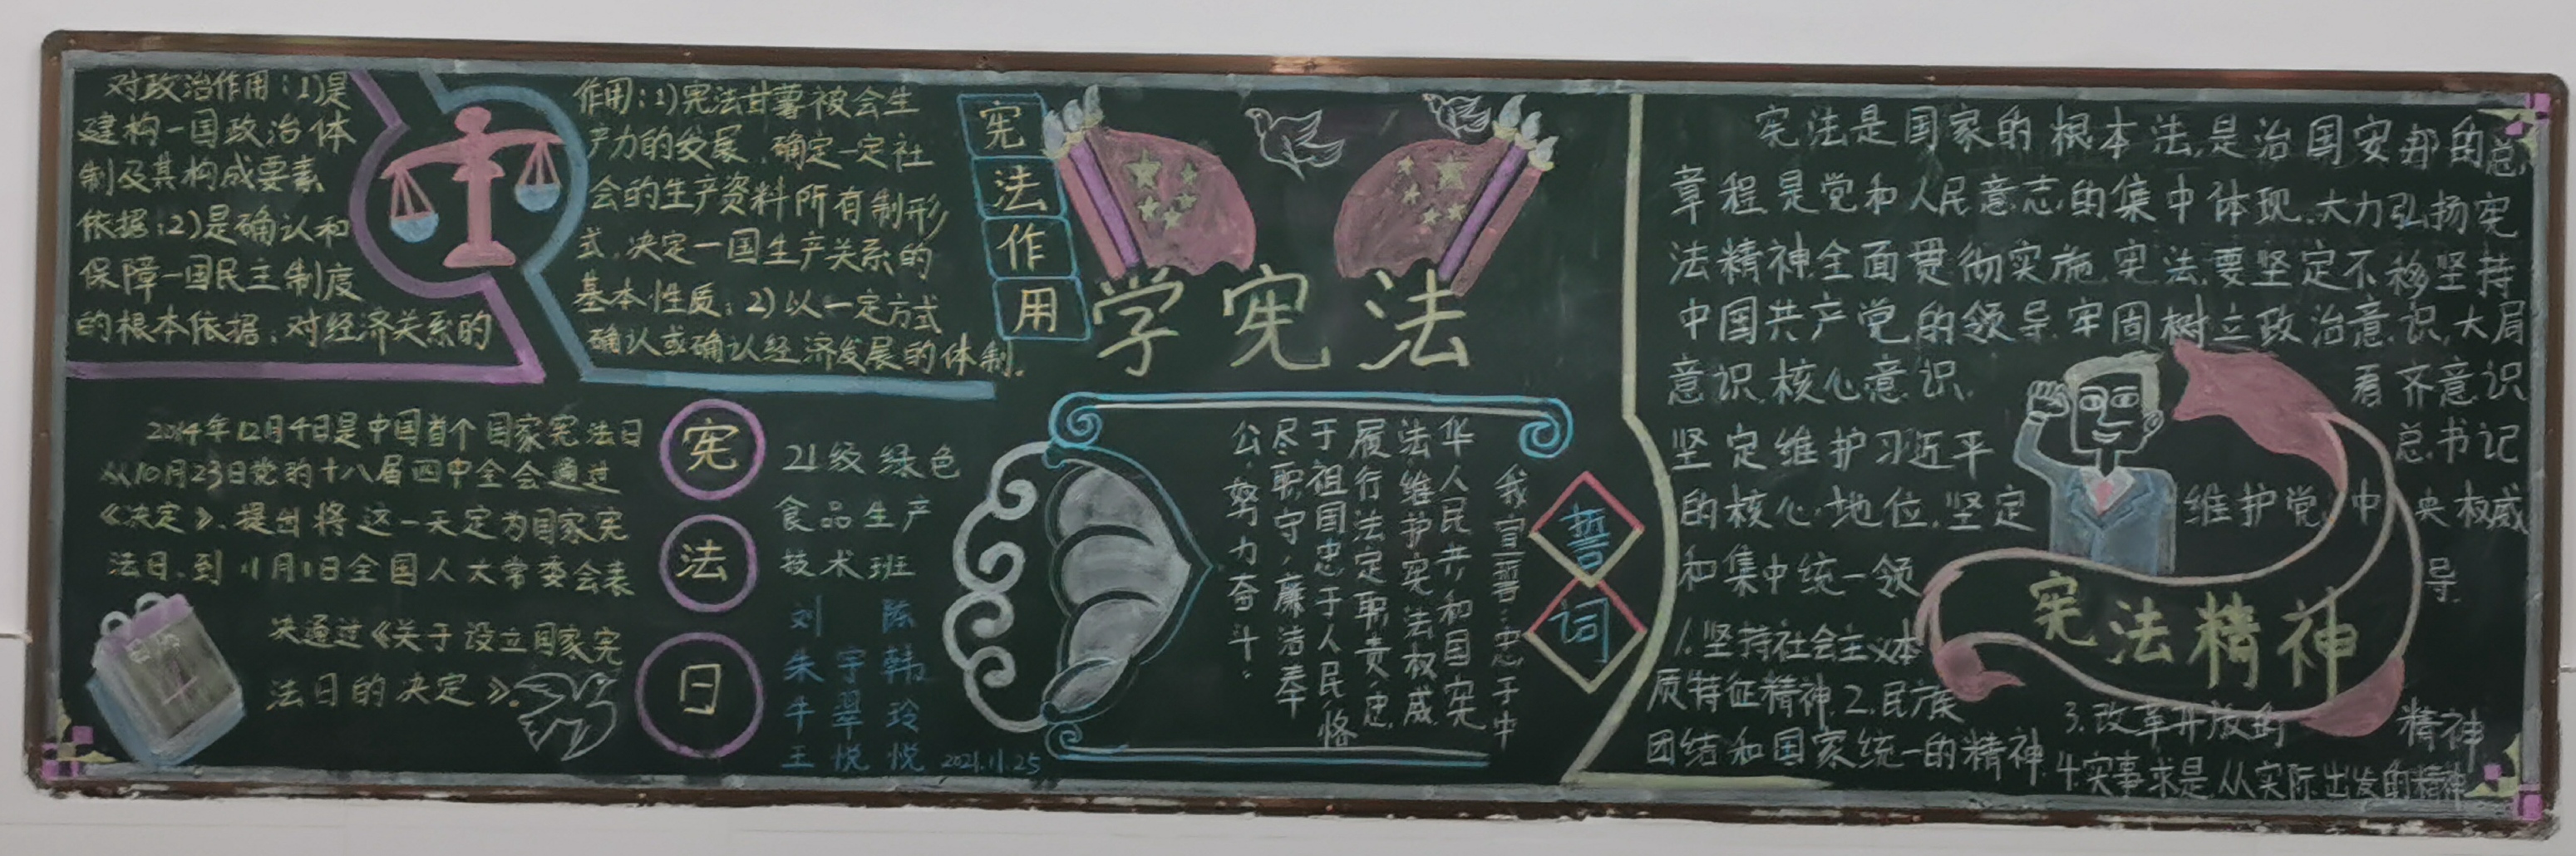 对政治作用:1)是
建构一国政治体
制及其构成要素
依据:2)是确认和
保障一国民主制度
的根本依据;对经济关系的
作用:1)宪法甘薯被会生
产力的发展,确定一定社
会的生产资料所有制形
式,决定一国生产关系的
基本性质;2)以一定方式
确认或确认经济发展的体制.
宪法作用
学宪法
2014年12月4日是中国首个国家宪法日
从10月23日党的十八届四中全会通过
《决定》,提出将这一天定为国家宪
法日,到11月1日全国人大常委会表
决通过《关于设立国家宪
法日的决定》.
宪法日
21级绿色
食品生产
技术班
刘 陈
朱宇韩
牛翠玲
王悦悦
2021.11.25
誓词
我宣誓:忠于中
华人民共和国宪
法维护宪法权威
履行法定职责忠
于祖国忠于人民,恪
尽职守,廉洁奉
公,努力奋斗.
宪法是国家的根本法,是治国安邦的总
章程是党和人民意志的集中体现,大力弘扬宪
法精神,全面贯彻实施宪法,要坚定不移坚持
中国共产党的领导,牢固树立政治意识,大局
意识,核心意识, 看齐意识
坚定维护习近平 总书记
的核心地位,坚定 维护党 中 央权威
和集中统一领 导.
宪法精神
1.坚持社会主义本
质特征精神,2.民族
团结和国家统一的精神
3.改革开放的 精神
4.实事求是,从实际出发的精神